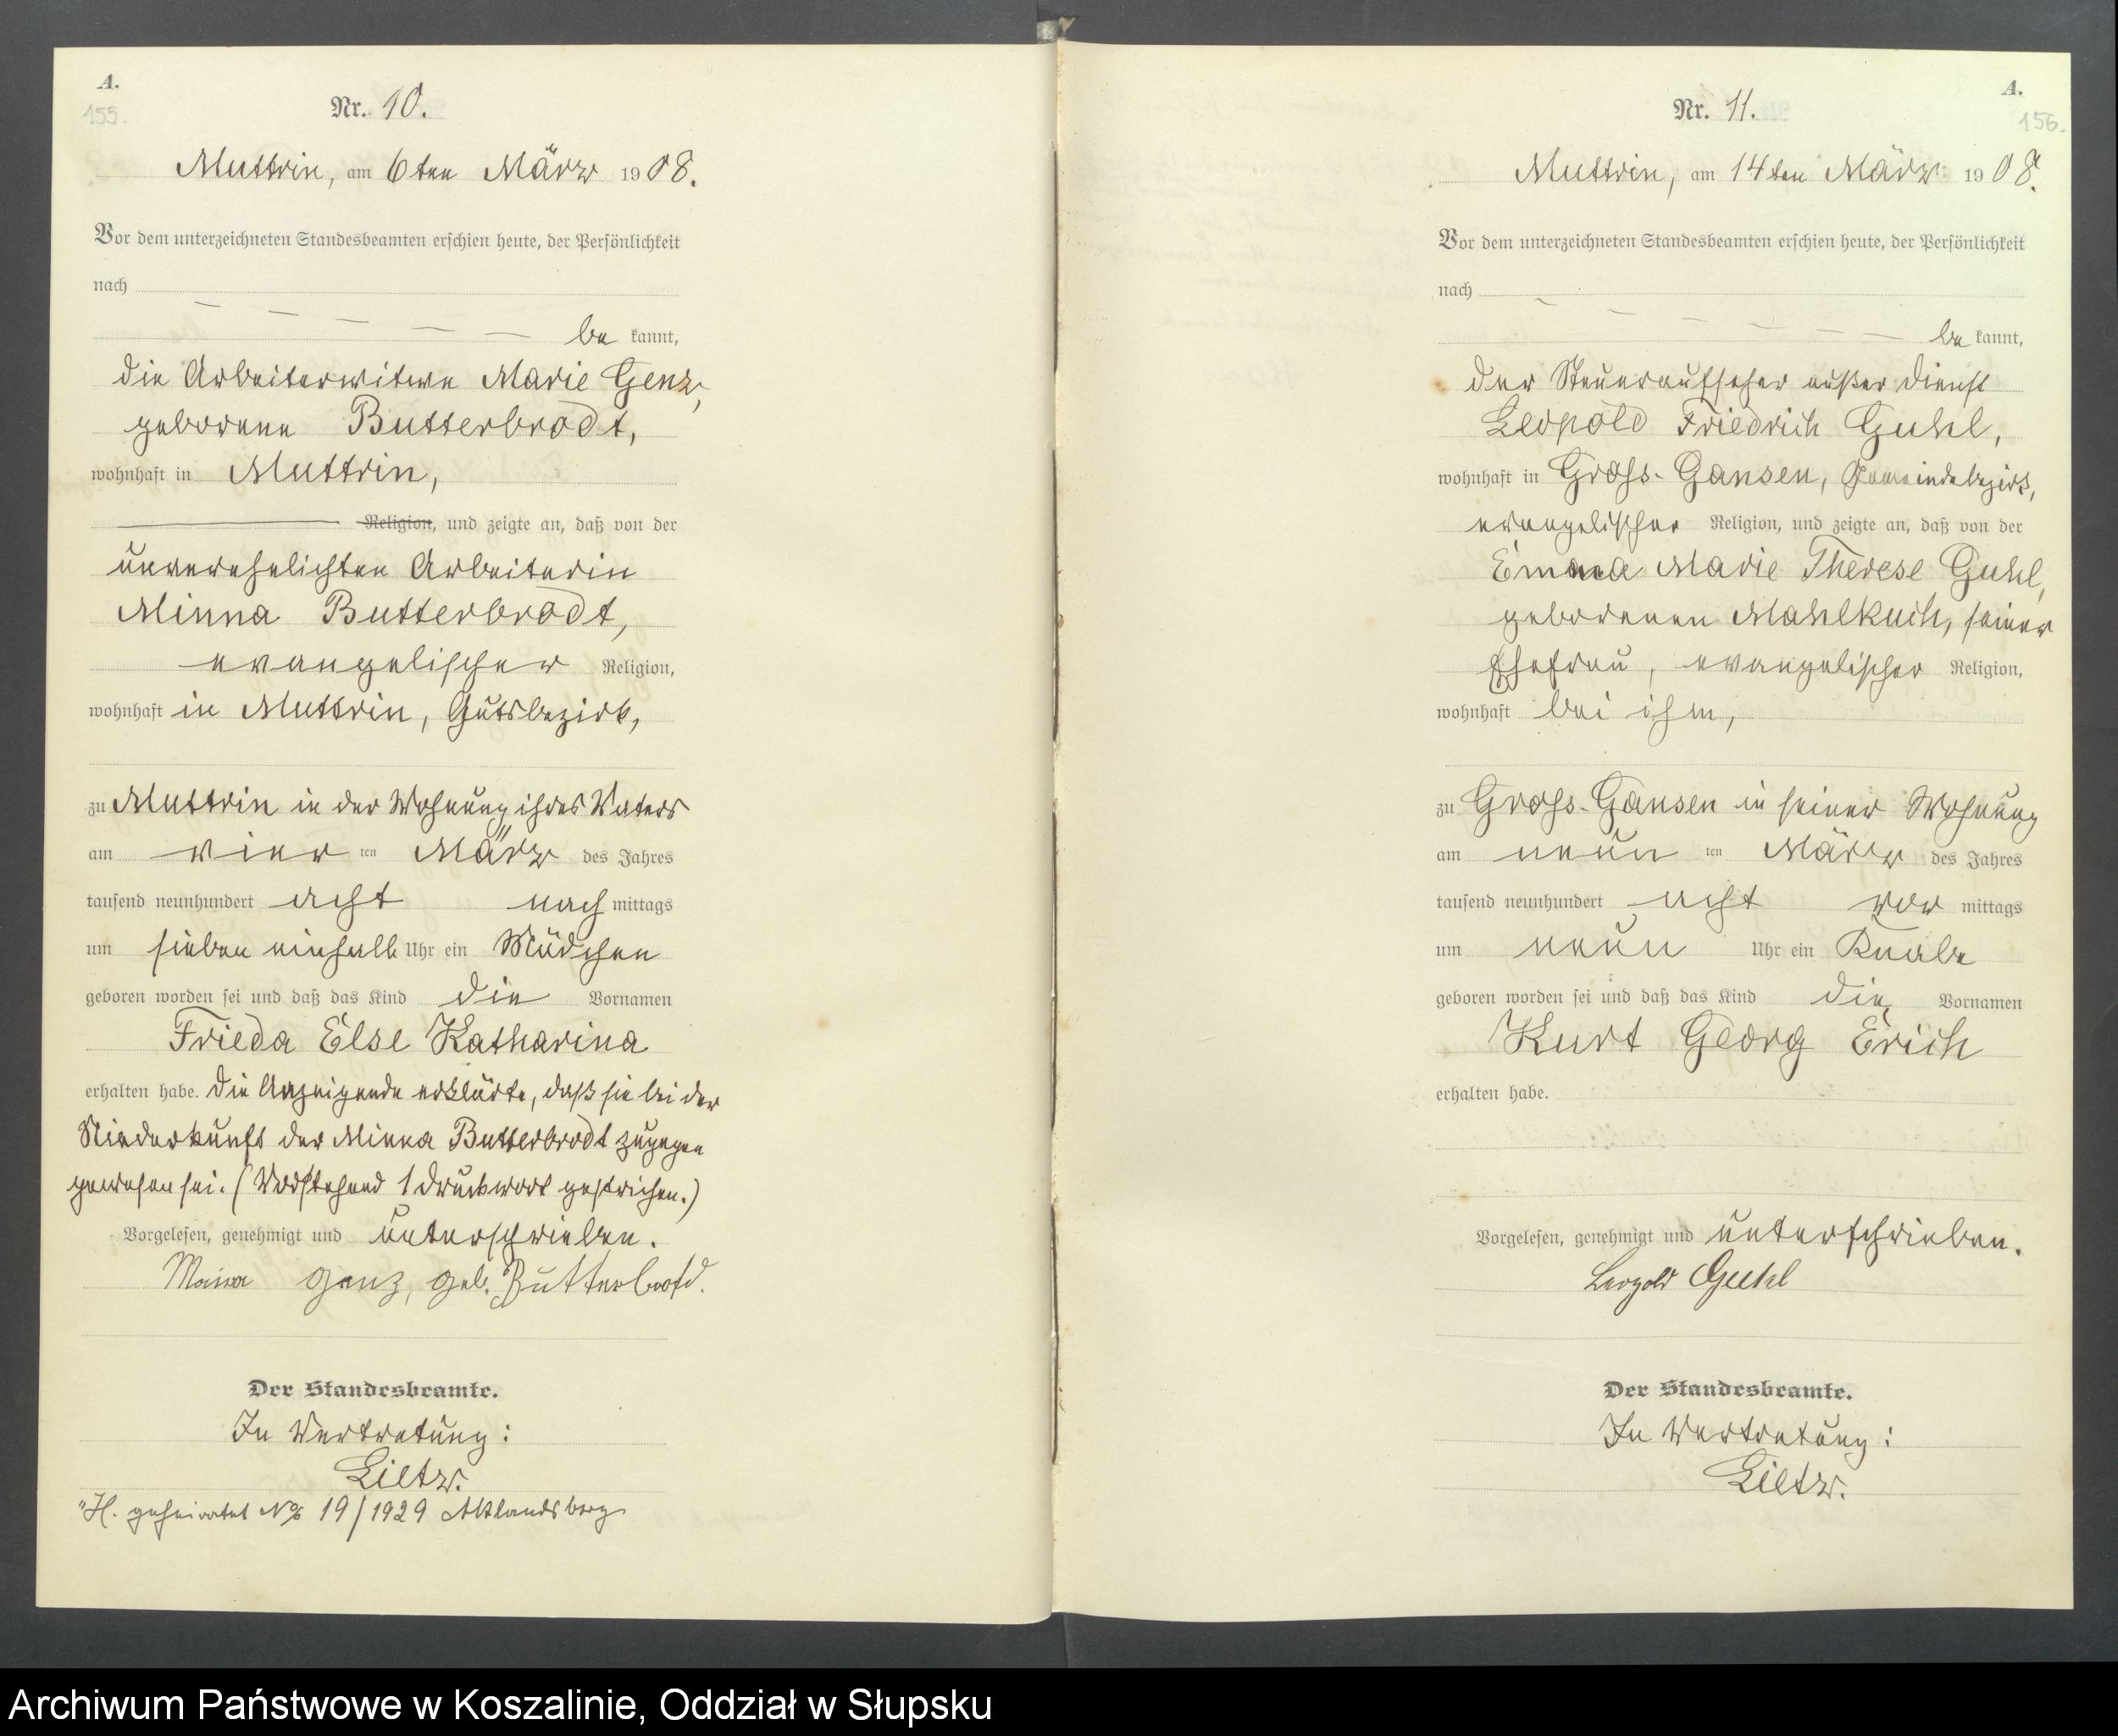 A.
155.
Nr. 10.
Muttrin, am 6ten März 1908.
Vor dem unterzeichneten Standesbeamten erschien heute, der Persönlichkeit
nach
be kannt,
die Arbeiterwitwe Marie Genz,
geborene Butterbrodt,
wohnhaft in Muttrin,
Religion, und zeigte an, daß von der
unverehelichten Arbeiterin
Minna Butterbrodt,
evangelischer Religion,
wohnhaft in Muttrin, Gutsbezirk,
zu Muttrin in der Wohnung ihres Vaters
am vier ten März des Jahres
tausend neunhundert acht nach mittags
um sieben einhalb Uhr ein Mädchen
geboren worden sei und daß das Kind die Vornamen
Frieda Else Katharina
erhalten habe. Die Anzeigende erklärte, daß sie bei der
Niederkunft der Minna Butterbrodt zugegen
gewesen sei. (Vorstehend 1 Druckwort gestrichen.)
Vorgelesen, genehmigt und unterschrieben.
Genz, geb.
Der Standesbeamte.
In Vertretung:
Lietz.
"H. geheiratet No 19/1929 Altlandsberg
A.
156.
Nr. 11.
Muttrin, am 14ten März 1908.
Vor dem unterzeichneten Standesbeamten erschien heute, der Persönlichkeit
nach
be kannt,
der Steueraufseher außer Dienst
Leopold Friedrich Guhl,
wohnhaft in Gross-Gansen, Gemeindebezirk,
evangelischer Religion, und zeigte an, daß von der
Emma Marie Therese Guhl,
geborenen Mahlkuch, seiner
Ehefrau, evangelischer Religion,
wohnhaft bei ihm,
zu Gross-Gansen in seiner Wohnung
am neun ten März des Jahres
tausend neunhundert acht vor mittags
um neun Uhr ein Knabe
geboren worden sei und daß das Kind die Vornamen
Kurt Georg Erich
erhalten habe.
Vorgelesen, genehmigt und unterschrieben.
Leopold Guhl
Der Standesbeamte.
In Vertretung:
Lietz.
Archiwum Państwowe w Koszalinie, Oddział w Słupsku